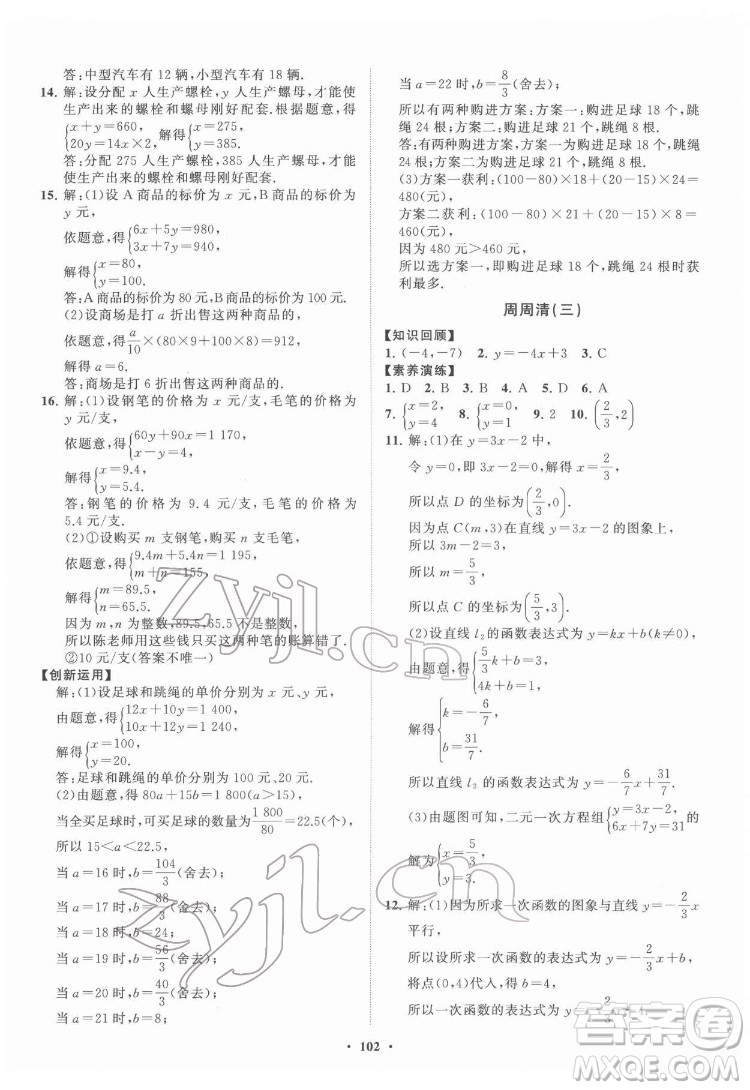 答:中型汽车有 12 辆,小型汽车有 18 辆.
14. 解:设分配 x 人生产螺栓,y 人生产螺母,才能使
生产出来的螺栓和螺母刚好配套.根据题意,得
{x+y=660, 20y=14x×2} 解得{x=275, y=385.
答:分配 275 人生产螺栓,385 人生产螺母,才能
使生产出来的螺栓和螺母刚好配套.
15. 解:(1)设 A 商品的标价为 x 元,B 商品的标价为
y 元,
依题意,得{6x+5y=980, 3x+7y=940,
解得{x=80, y=100.
答:A 商品的标价为 80 元,B 商品的标价为 100 元.
(2)设商场是打 a 折出售这两种商品,
依题意,得a/10×(80×9+100×8)=912,
解得 a=6.
答:商场是打 6 折出售这两种商品.
16. 解:(1)设钢笔的价格为 x 元/支,毛笔的价格为
y 元/支,
依题意,得{60y+90x=1 170, x-y=4,
解得{x=9.4, y=5.4.
答:钢笔的价格为 9.4 元/支,毛笔的价格为
5.4 元/支.
(2)①设购买 m 支钢笔,购买 n 支毛笔,
依题意,得{9.4m+5.4n=1 195, m+n=155,
解得{m=89.5, n=65.5.
因为 m,n 为整数,89.5,65.5 不为整数,
所以陈老师用这些钱只买这两种笔的账算错了.
②10 元/支(答案不唯一)
【创新运用】
解:(1)设足球和跳绳的单价分别为 x 元、y 元,
由题意,得{12x+10y=1 400, 10x+12y=1 240,
解得{x=100, y=20.
答:足球和跳绳的单价分别为 100 元、20 元.
(2)由题意,得 80a+15b=1 800(a>15),
当全买足球时,可买足球的数量为1 800/80=22.5(个),
所以 15<a<22.5,
当 a=16 时,b=104/3(舍去);
当 a=17 时,b=88/3(舍去);
当 a=18 时,b=24;
当 a=19 时,b=56/3(舍去);
当 a=20 时,b=40/3(舍去);
当 a=21 时,b=8;
当 a=22 时,b=8/3(舍去);
所以有两种购进方案:方案一:购进足球 18 个,跳
绳 24 根;方案二:购进足球 21 个,跳绳 8 根.
答:有两种购进方案:方案一:购进足球 18 个,跳绳
24 根;方案二:购进足球 21 个,跳绳 8 根.
(3)方案一获利:(100-80)×18+(20-15)×24=
480(元),
方案二获利:(100-80)×21+(20-15)×8=
460(元),
因为 480 元>460 元,
所以选方案一,即购进足球 18 个,跳绳 24 根获
利最多.
周周清(三)
【知识回顾】
1. (-4,-7) 2. y=-4x+3 3. C
【素养演练】
1. D 2. B 3. A 4. B 5. D 6. D
7. {x=2, y=4 8. {x=0, y=1 9. 2 10. (2/3,2)
11. 解:(1)在 y=3x-2 中,
令 y=0,即 3x-2=0,解得 x=2/3,
所以点 D 的坐标为(2/3,0).
因为点 C(m,3)在直线 y=3x-2 的图象上,
所以 3m-2=3,
所以 m=5/3,
所以点 C 的坐标为(5/3,3).
(2)设直线 l₂的函数表达式为 y=kx+b(k≠0),
由题意,得{5/3k+b=3, 4k+b=1,
解得{k=-6/7, b=31/7.
所以直线 l₂的函数表达式为 y=-6/7x+31/7.
(3)由题图可知,二元一次方程组{y=3x-2, 6x+7y=31}的
解为{x=5/3, y=3.
12. 解:(1)因为所求一次函数的图象与直线 y=-2/3x
平行,
所以设所求一次函数的表达式为 y=-2/3x+b,
将点(0,4)代入,得 b=4,
所以一次函数的表达式为 y=-2/3x+4.
102
Zyjl.cn
Zyjl.cn
答案圈
MXQE.COM